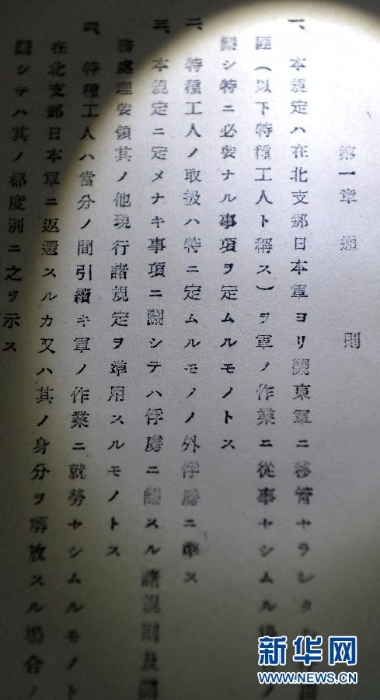 第一章 通則
一、本規定ハ在北支那日本軍ヨリ關東軍ニ移管セラレタ
匪(以下特種工人ト稱ス)ヲ軍ノ作業ニ從事セシムル
關シ特ニ必要ナル事項ヲ定ムルモノトス
二、特種工人ノ取扱ハ特ニ定ムルモノノ外俘虜ニ準ス
三、本規定ニ定メナキ事項ニ關シテハ俘虜ニ關スル諸規則及
務處理要領其ノ他現行諸規定ヲ準用スルモノトス
四、特種工人ハ當分ノ間引續キ軍ノ作業ニ就勞セシムルモノト
在北支那日本軍ニ返還スルカ又ハ其ノ身分ヲ解放スル場合ノ
關シテハ其ノ都度別ニ之ヲ示ス
新华网
WWW.NEWS.CN